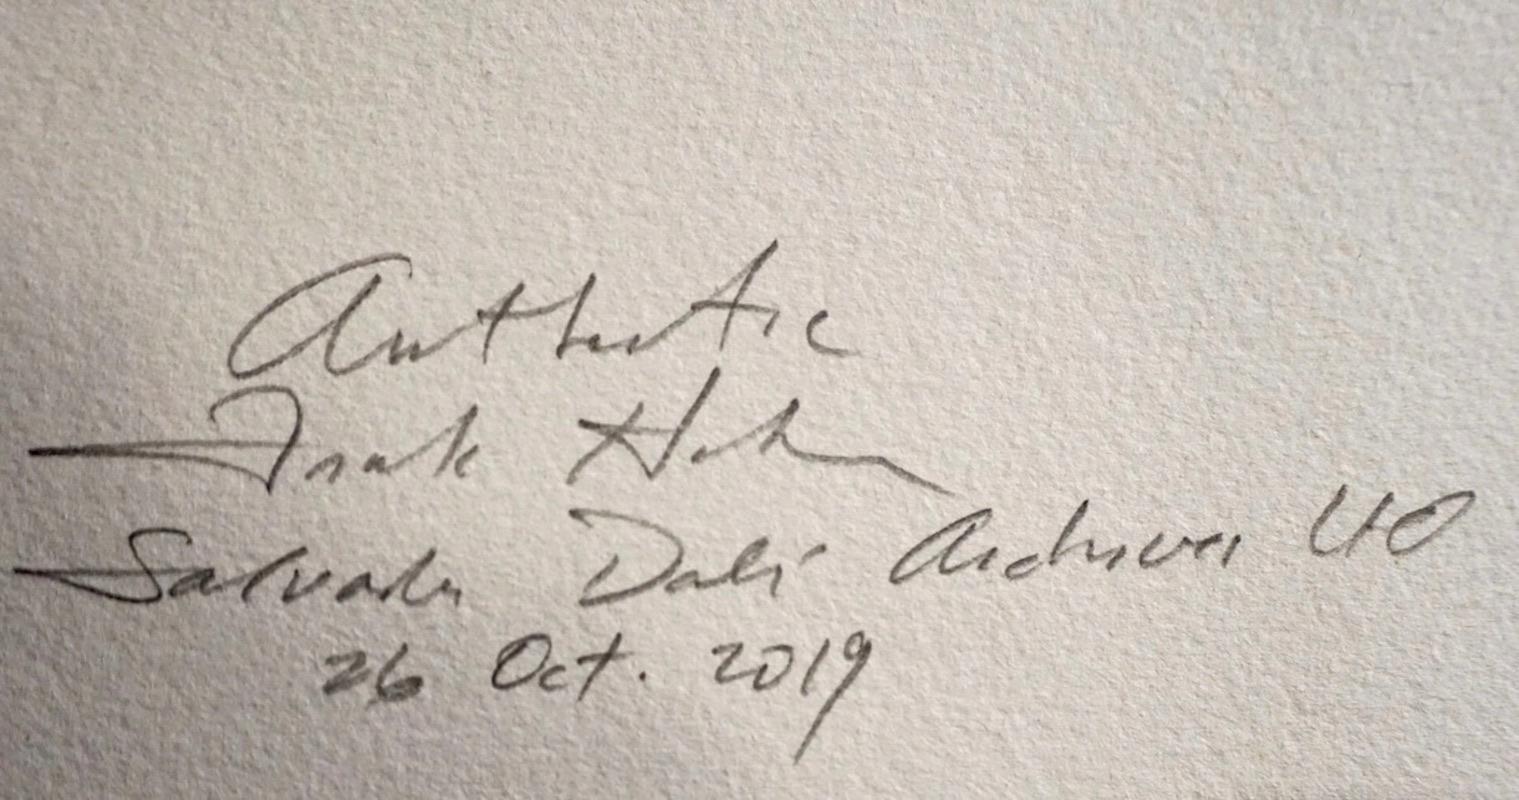 Authentic
Frank Hunter
Salvador Dali Archives LTD
26 Oct. 2019